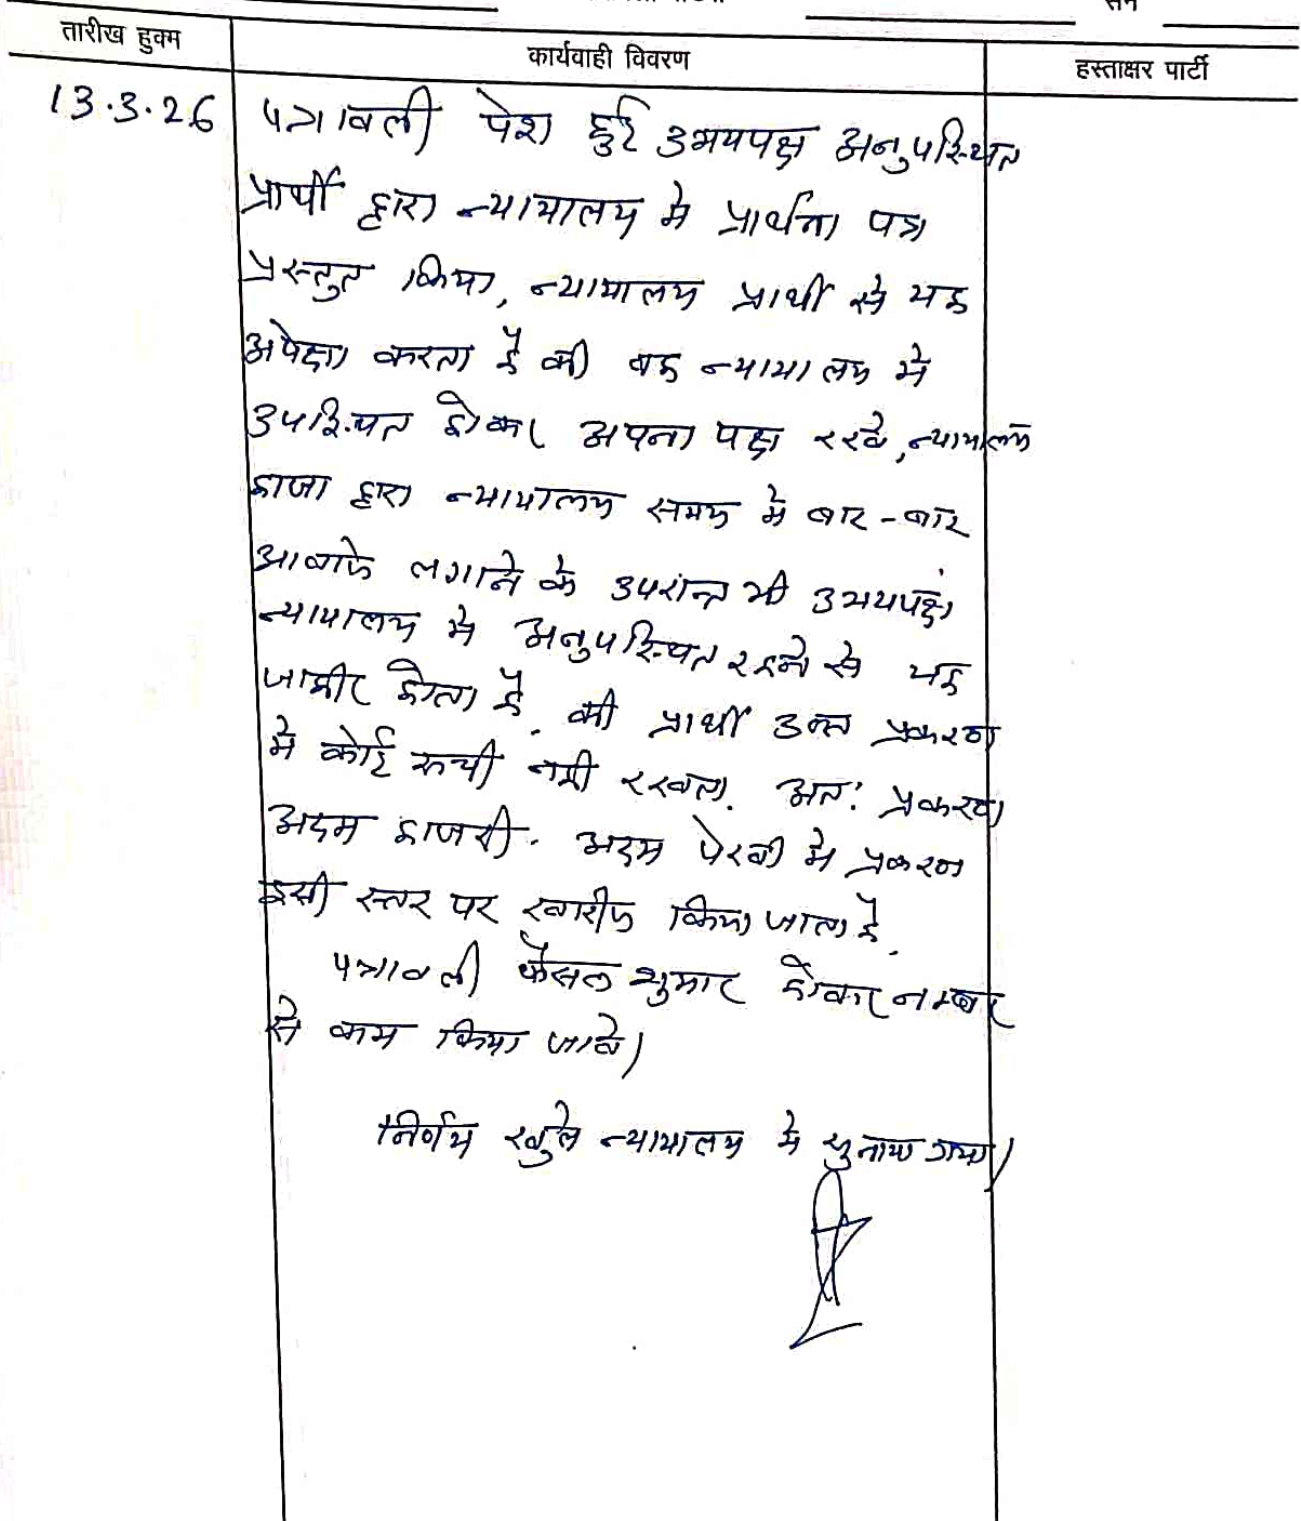 सन
तारीख हुक्म कार्यवाही विवरण हस्ताक्षर पार्टी
13.3.26 पत्रावली पेश हुई उभयपक्ष अनुपस्थित
प्रार्थी द्वारा न्यायालय मे प्रार्थना पत्र
प्रस्तुत किया, न्यायालय प्रार्थी से यह
अपेक्षा करता है की वह न्यायालय मे
उपस्थित होकर अपना पक्ष रखे, न्यायालय
द्वारा न्यायालय समय मे बार-बार
आवाजे लगाने के उपरान्त भी उभयपक्ष
न्यायालय मे अनुपस्थित रहने से यह
जाहीर होता है. की प्रार्थी उक्त प्रकरण
मे कोई रूची नही रखता. अत: प्रकरण
अदम हाजरी. अदम पेरवी मे प्रकरण
इसी स्तर पर खारीज किया जाता है.
पत्रावली फैसल शुमार होकर नम्बर
से कम किया जावे।
निर्णय खुले न्यायालय मे सुनाया गया।